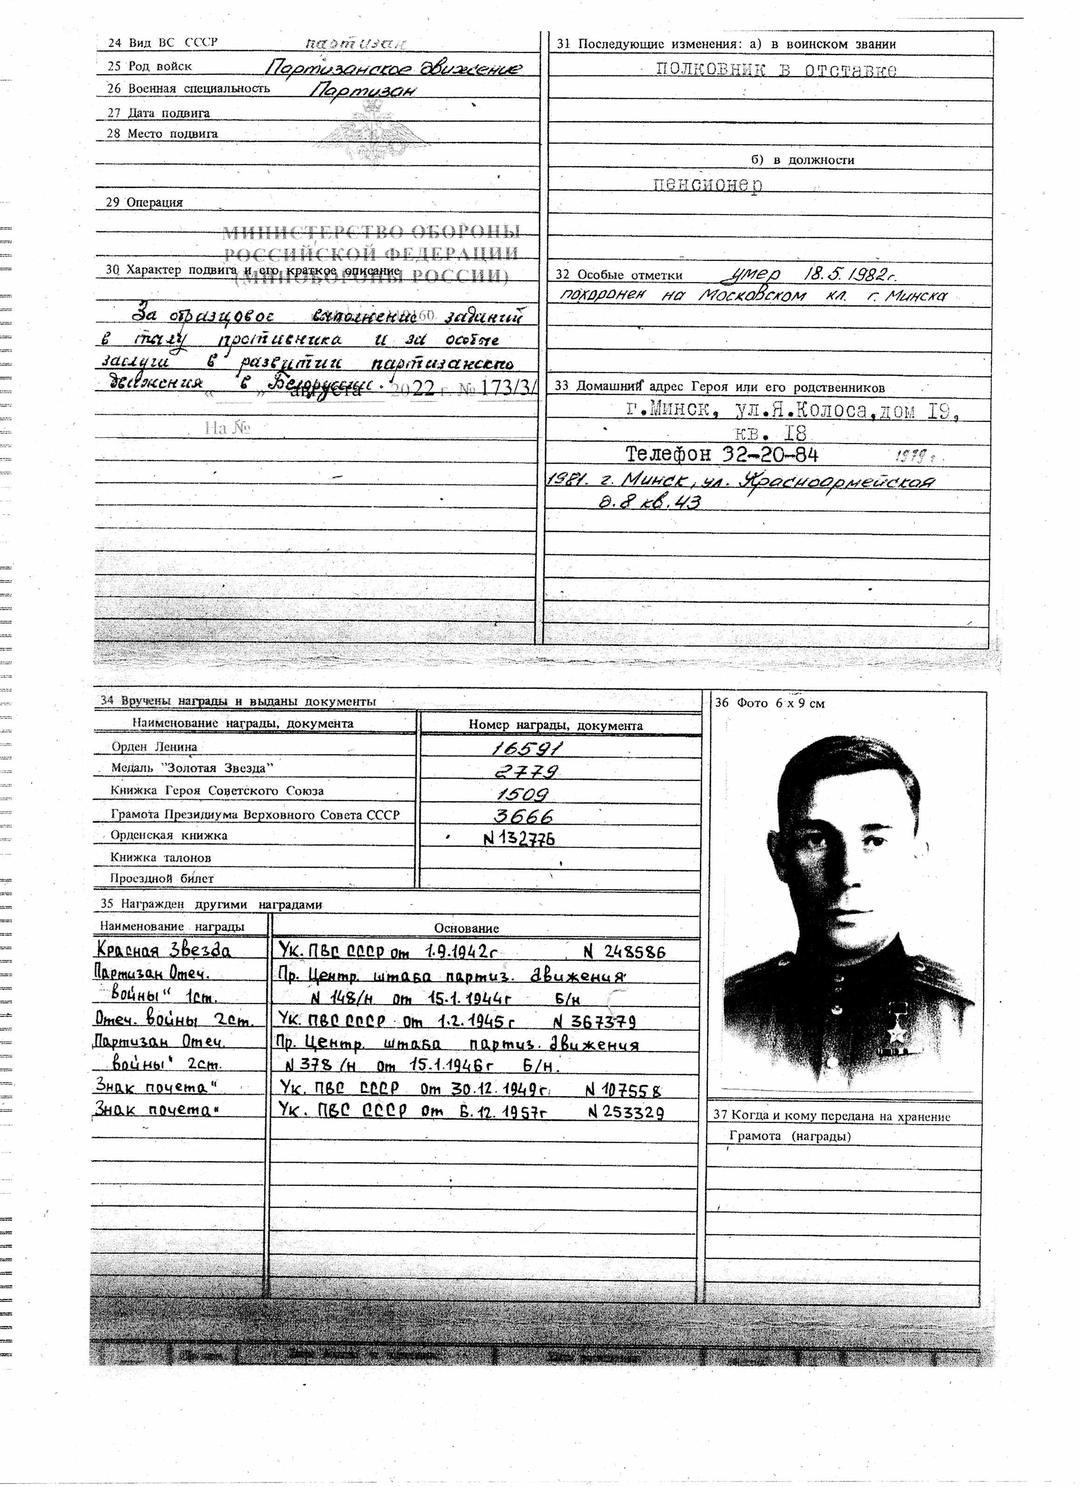 24 Вид ВС СССР партизан
25 Род войск Партизанское движение
26 Военная специальность Партизан
27 Дата подвига
28 Место подвига
29 Операция
МИНИСТЕРСТВО ОБОРОНЫ
РОССИЙСКОЙ ФЕДЕРАЦИИ
(МИНОБОРОНЫ РОССИИ)
30 Характер подвига и его краткое описание
За образцовое выполнение заданий
в тылу противника и за особые
заслуги в развитии партизанского
движения в Белоруссии.
августа 2022 г. № 173/3/
На №
31 Последующие изменения: а) в воинском звании
полковник в отставке
б) в должности
пенсионер
32 Особые отметки умер 18.5.1982г.
похоронен на Московском кл. г. Минска
33 Домашний адрес Героя или его родственников
г.Минск, ул.Я.Колоса, дом 19,
кв. 18
Телефон 32-20-84 1979г.
1981. г. Минск, ул. Красноармейская
д.8 кв.43
34 Вручены награды и выданы документы
Наименование награды, документа Номер награды, документа
Орден Ленина 16591
Медаль "Золотая Звезда" 2779
Книжка Героя Советского Союза 1509
Грамота Президиума Верховного Совета СССР 3666
Орденская книжка N 132776
Книжка талонов
Проездной билет
35 Награжден другими наградами
Наименование награды Основание
Красная Звезда Ук. ПВС СССР от 1.9.1942г N 248586
Партизан Отеч. Пр. Центр. штаба партиз. движения
войны" 1ст. N 148/н от 15.1.1944г б/н
Отеч. войны 2ст. Ук. ПВС СССР от 1.2.1945г N 367379
Партизан Отеч. Пр. Центр. штаба партиз. движения
войны" 2ст. N 378/н от 15.1.1946г б/н.
Знак почета" Ук. ПВС СССР от 30.12.1949г. N 107558
Знак почета" Ук. ПВС СССР от 6.12.1957г N 253329
36 Фото 6 х 9 см
37 Когда и кому передана на хранение
Грамота (награды)